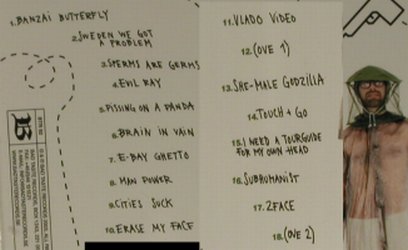 1. BANZAI BUTTERFLY
2. SWEDEN WE GOT
A PROBLEM
3. SPERMS ARE GERMS
4. EVIL RAY
5. PISSING ON A PANDA
6. BRAIN IN VAIN
7. E-BAY GHETTO
8. MAN POWER
9. CITIES SUCK
10. ERASE MY FACE
11. VLADO VIDEO
12. (OVE 1)
13. SHE-MALE GODZILLA
14. TOUCH + GO
15. I NEED A TOURGUIDE
FOR MY OWN HEAD
16. SUBHUMANIST
17. 2FACE
18. (OVE 2)